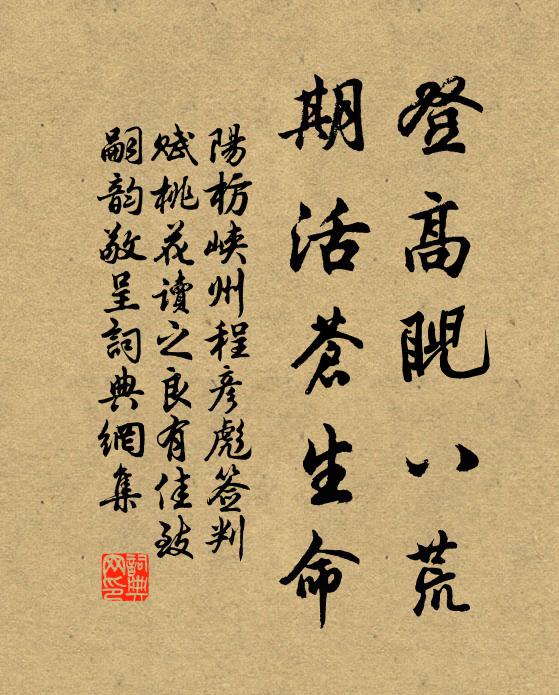 登高睨八荒
期活蒼生命
陽枋峽州程彥彪簽判
賦桃花讀之良有佳致
嗣韵敬呈詞典網集
詞典网印